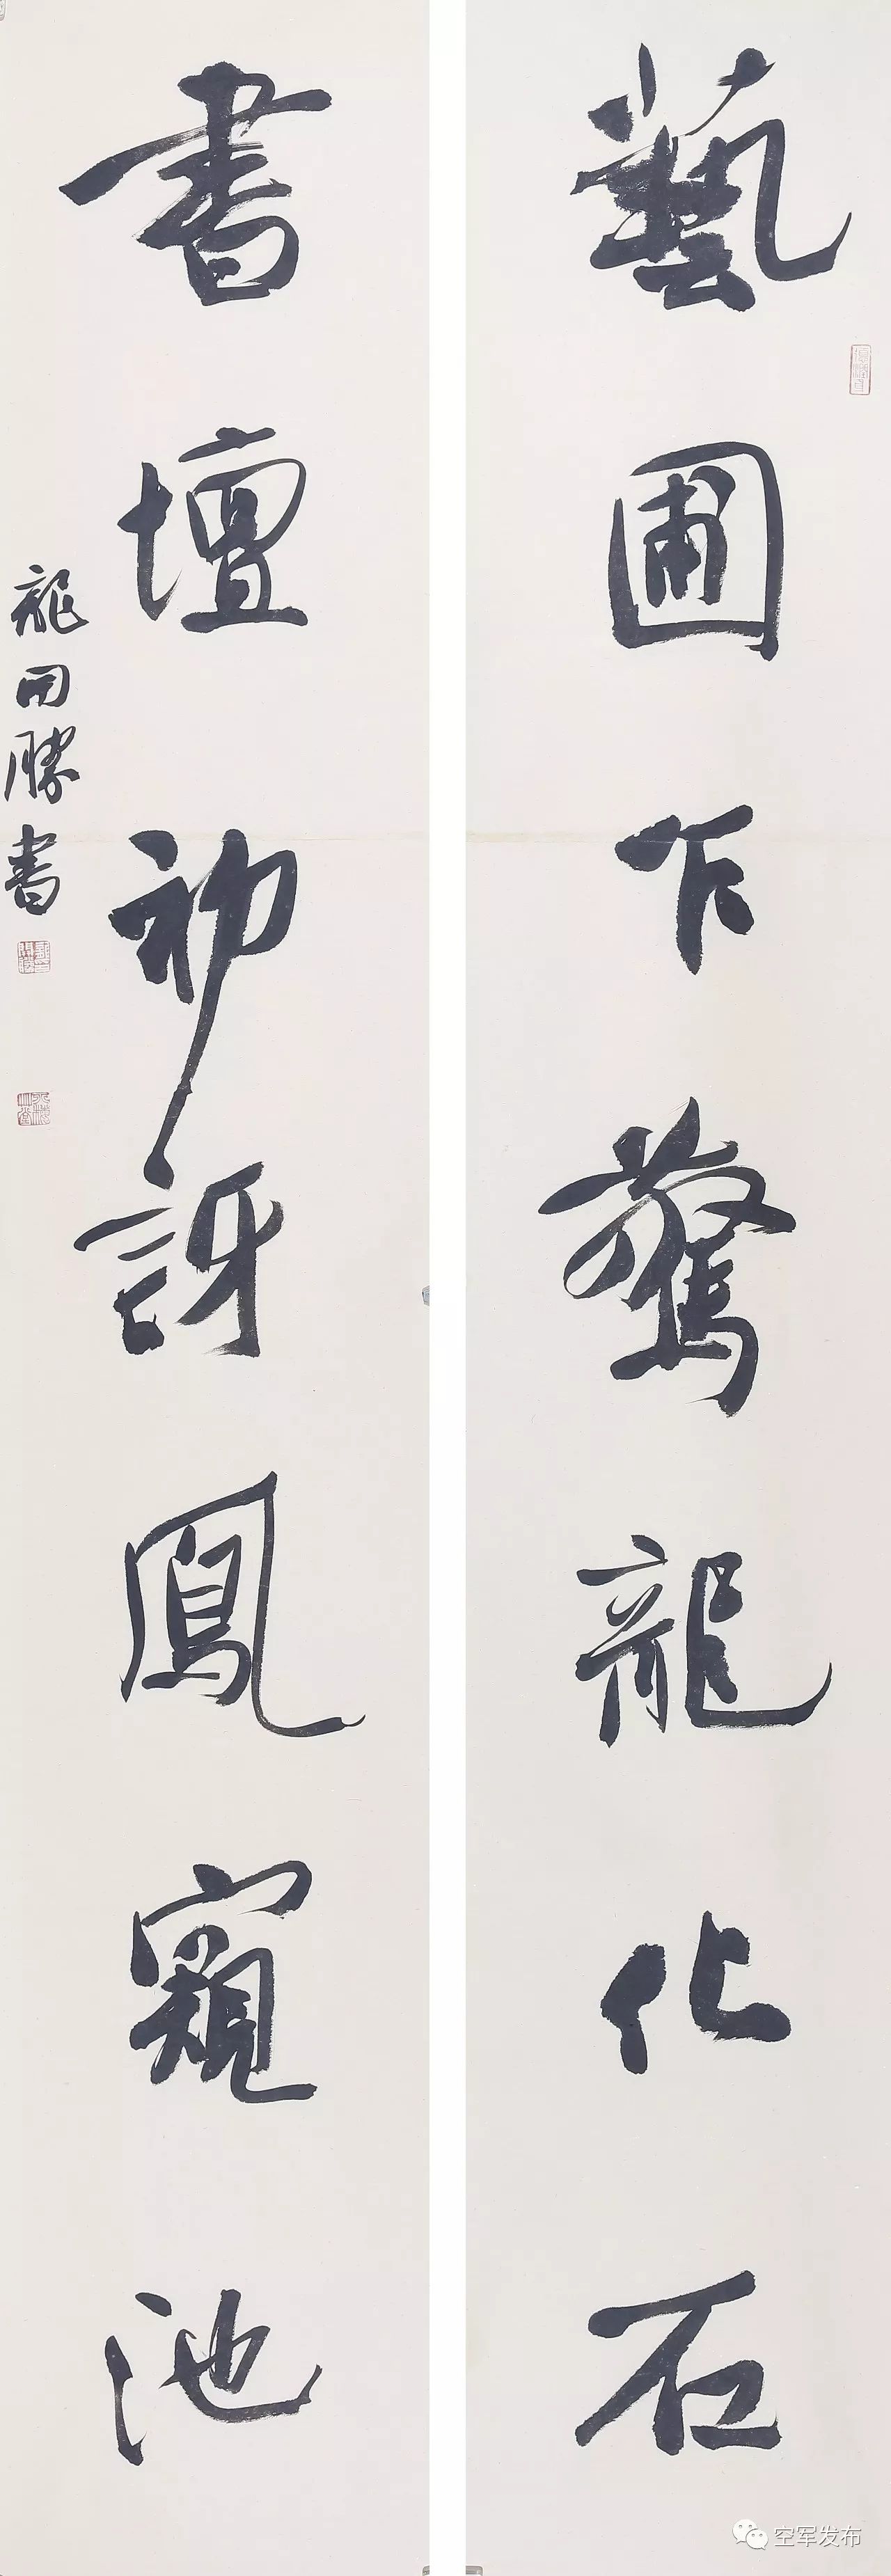 藝圃乍驚龍化石
書壇初訝鳳窺池
龍開勝書
空军发布